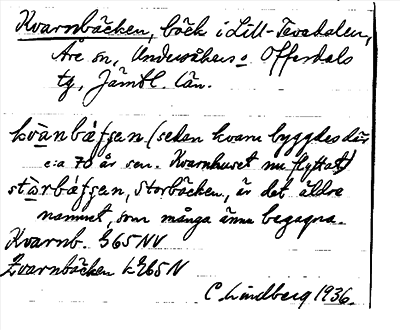 Kvarnbäcken, bäck i Lill-Tevedalen,
Åre sn, Undersåkers o Offerdals
tg, Jämtl. län.
kvànbǽkan (sedan kvarn byggdes där
c:a 70 år sen. Kvarnhuset nu flyttat)
stàrbǽkan, Storbäcken, är det äldre
namnet, som många ännu begagna.
Kvarnb. G65NV
Kvarnbäcken k G65N
C Lindberg 1936.